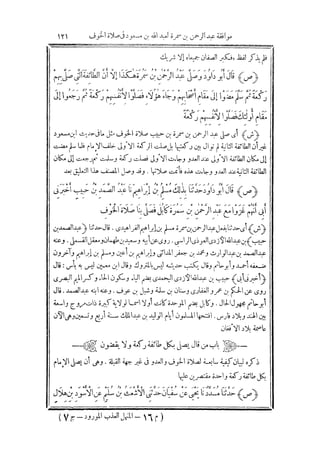 موافقة عبد الرحمن بن سمرة لعبد الله بن مسعود فى صلاة الخوف ١٢١
فلم يذكر لفظ ، فكبر الصفان جميعا، إلا شريك
﴿ص﴾ قَالَ أَبُو دَاوُدَ وَصَلَّى عَبْدُ الرَّحْمٰنِ بْنُ سَمُرَةَ هٰكَذَا إِلَّا أَنَّ الطَّائِفَةَ الَّتِى صَلَّى بِهِمْ
رَكْعَةً ثُمَّ سَلَّمَ مَضَوْا إِلَى مَقَامِ أَصْحَابِهِمْ وَجَاءَ هٰؤُلَاءِ فَصَلَّوْا لِأَنْفُسِهِمْ رَكْعَةً ثُمَّ رَجَعُوا إِلَى
مَقَامِ أُولٰئِكَ فَصَلَّوْا لِأَنْفُسِهِمْ رَكْعَةً
﴿ش﴾ أى صلى عبد الرحمن بن سمرة بن حبيب صلاة الخوف مثل مافى حديث ابن مسعود
غير أن الطائفة الثانية لم توال بين ركعتيها بل صلت الركعة الأولى خلف الإمام فلما سلم مضت
إلى مكان الطائفة الأولى عند العدو وجاءت الأولى فصلت ركعة وسلمت ثم رجعت إلى مكان
الطائفة الثانية عند العدو وجاءت هذه فأتمت صلاتها . وقد وصل المصنف هذا التعليق بعد
﴿ص﴾ قَالَ أَبُو دَاوُدَ حَدَّثَنَا بِذٰلِكَ مُسْلِمُ بْنُ إِبْرَاهِيمَ نَا عَبْدُ الصَّمَدِ بْنُ حَبِيبٍ أَخْبَرَنِى
أَبِى أَنَّهُمْ غَزَوْا مَعَ عَبْدِ الرَّحْمٰنِ بْنِ سَمُرَةَ كَابُلَ فَصَلَّى بِنَا صَلَاةَ الْخَوْفِ
﴿ش﴾ أى حدثنا بفعل عبد الرحمن بن سمرة مسلم بن إبراهيم الفراهيدى . قال حدثنا ﴿عبد الصمد بن
حبيب﴾ بن عبد الله الأزدى العوذى الراسبى . روى عن أبيه وسعيد بن طهمان ومعقل القسملى . وعنه
عبد الصمد بن عبد الوارث ومحمد بن جعفر المدائنى وإبراهيم بن أعين ومسلم بن إبراهيم وآخرون
ضعفه أحمد وأبو حاتم وقال يكتب حديثه ليس بالمتروك وقال ابن معين ليس به بأس : قال
﴿أخبرنى أبى﴾ حبيب بن عبد الله الأزدى اليحمدى بضم الياء وسكون الحاء وكسر الميم البصرى
روى عن الحكم بن عمرو الغفارى وسنان بن سلمة وشبل بن عوف . وعنه ابنه عبد الصمد . قال
أبو حاتم مجهول الحال . وكابل بضم الموحدة كانت أولا اسما لولاية كبيرة ذات مروج واسعة
بين الهند وبلاد فارس . افتتحها المسلمون أيام الوليد بن عبد الملك سنة أربع وتسعين وهى الآن
عاصمة بلاد الأفغان
باب من قال يصلى بكل طائفة ركعة ولا يقضون
ذكره لبيان كيفية سابعة لصلاة الخوف والعدو فى غير جهة القبلة . وهى أن يصلى الإمام
بكل طائفة ركعة واحدة مقتصرين عليها
﴿ص﴾ حَدَّثَنَا مُسَدَّدٌ نَا يَحْيَى عَنْ سُفْيَانَ حَدَّثَنِى الْأَشْعَثُ بْنُ سُلَيْمٍ عَنِ الْأَسْوَدِ بْنِ هِلَالٍ
﴿م ١٦ — المنهل العذب المورود — ج ٧﴾